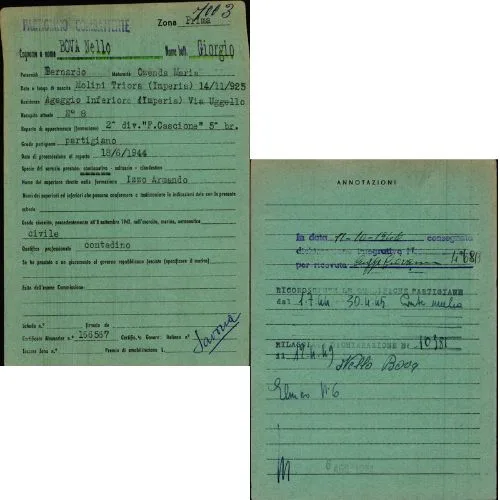 7003
PARTIGIANO COMBATTENTE Zona Prima
Cognome e nome BOVA Nello Nome batt. Giorgio
Paternità Bernardo Maternità Oxenda Maria
Data e luogo di nascita Molini Triora (Imperia) 14/11/925
Residenza Agaggio Inferiore (Imperia) Via Uggello
Recapito attuale N° 8
Reparto di appartenenza (formazione) 2^ div."F.Cascione" 5^ br.
Grado partigiano partigiano
Data di presentazione al reparto 18/6/1944
Specie del servizio prestato: continuativo - saltuario - clandestino
Nome del superiore diretto nella formazione Izzo Armando
Nomi dei superiori ed inferiori che possono confermare e testimoniare le indicazioni date con la presente
scheda
Grado rivestito, precedentemente all'8 settembre 1943, nell'esercito, marina, aeronautica
civile
Qualifica professionale contadino
Se ha prestato o no giuramento al governo repubblicano fascista (specificare il motivo)
Esito dell'esame Commissione:
Scheda n.° firmata da
Certificato Alexander n.° 166567 Certific.° Govern. Italiano n.°
Tessera Anpi n.° Premio di smobilitazione L.
Savona
ANNOTAZIONI
In data 11-10-1946 consegnata
dichiarazione integrativa N.
per ricevuta
RICONOSCIUTE LE QUALIFICHE PARTIGIANE
dal 1.7.44 30.4.45
RILASCIATA DICHIARAZIONE N. 10381
di Nello Bova
Elenco N°6